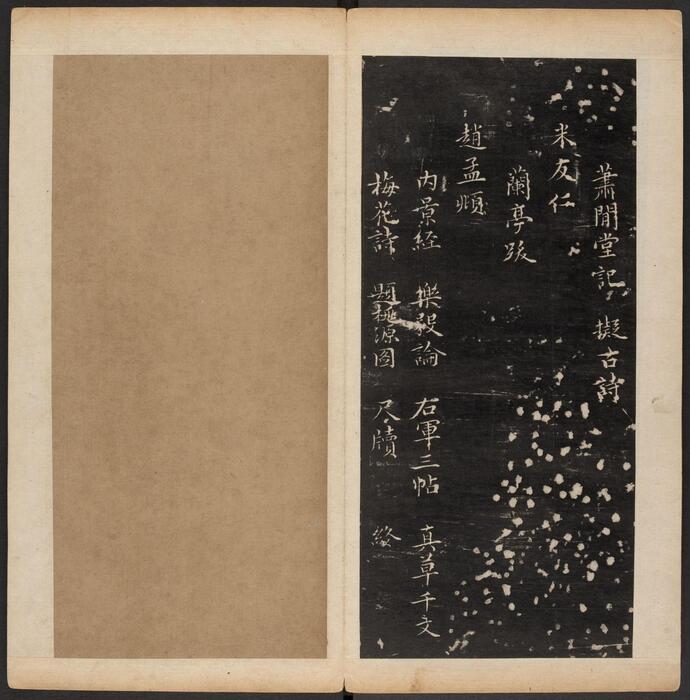 蕭閒堂記　擬古詩
米友仁
蘭亭跋
趙孟頫
内景経　樂毅論　右軍三帖　真草千文
梅花詩　題桃源圖　尺牘　終